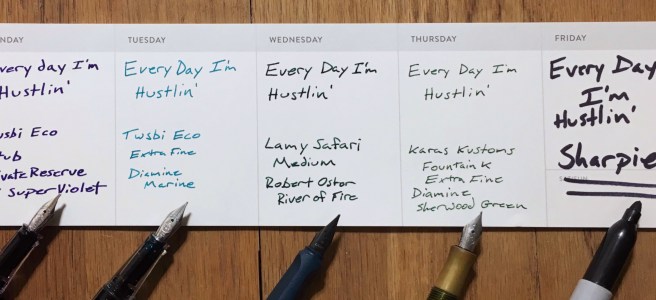 NDAY
very day I'm
Hustlin'
wsbi Eco
tub
rivate Reserve
Super Violet
TUESDAY
Every Day I'm
Hustlin'
Twsbi Eco
Extra Fine
Diamine
Marine
WEDNESDAY
Every Day I'm
Hustlin'
Lamy Safari
Medium
Robert Oster
River of Fire
THURSDAY
Every Day I'm
Hustlin'
Karas Kustoms
Fountain K
Extra Fine
Diamine
Sherwood Green
FRIDAY
Every Day
I'm
Hustlin'
Sharpie